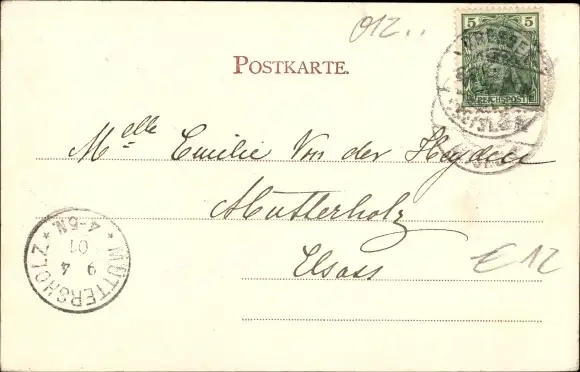 012..
5 5
REICHSPOST
POSTKARTE.
Melle Emilie Von der Heyden
Mutterholz
Elsass
€12
MUTTERSHOLZ
9 4
01
4-5N.